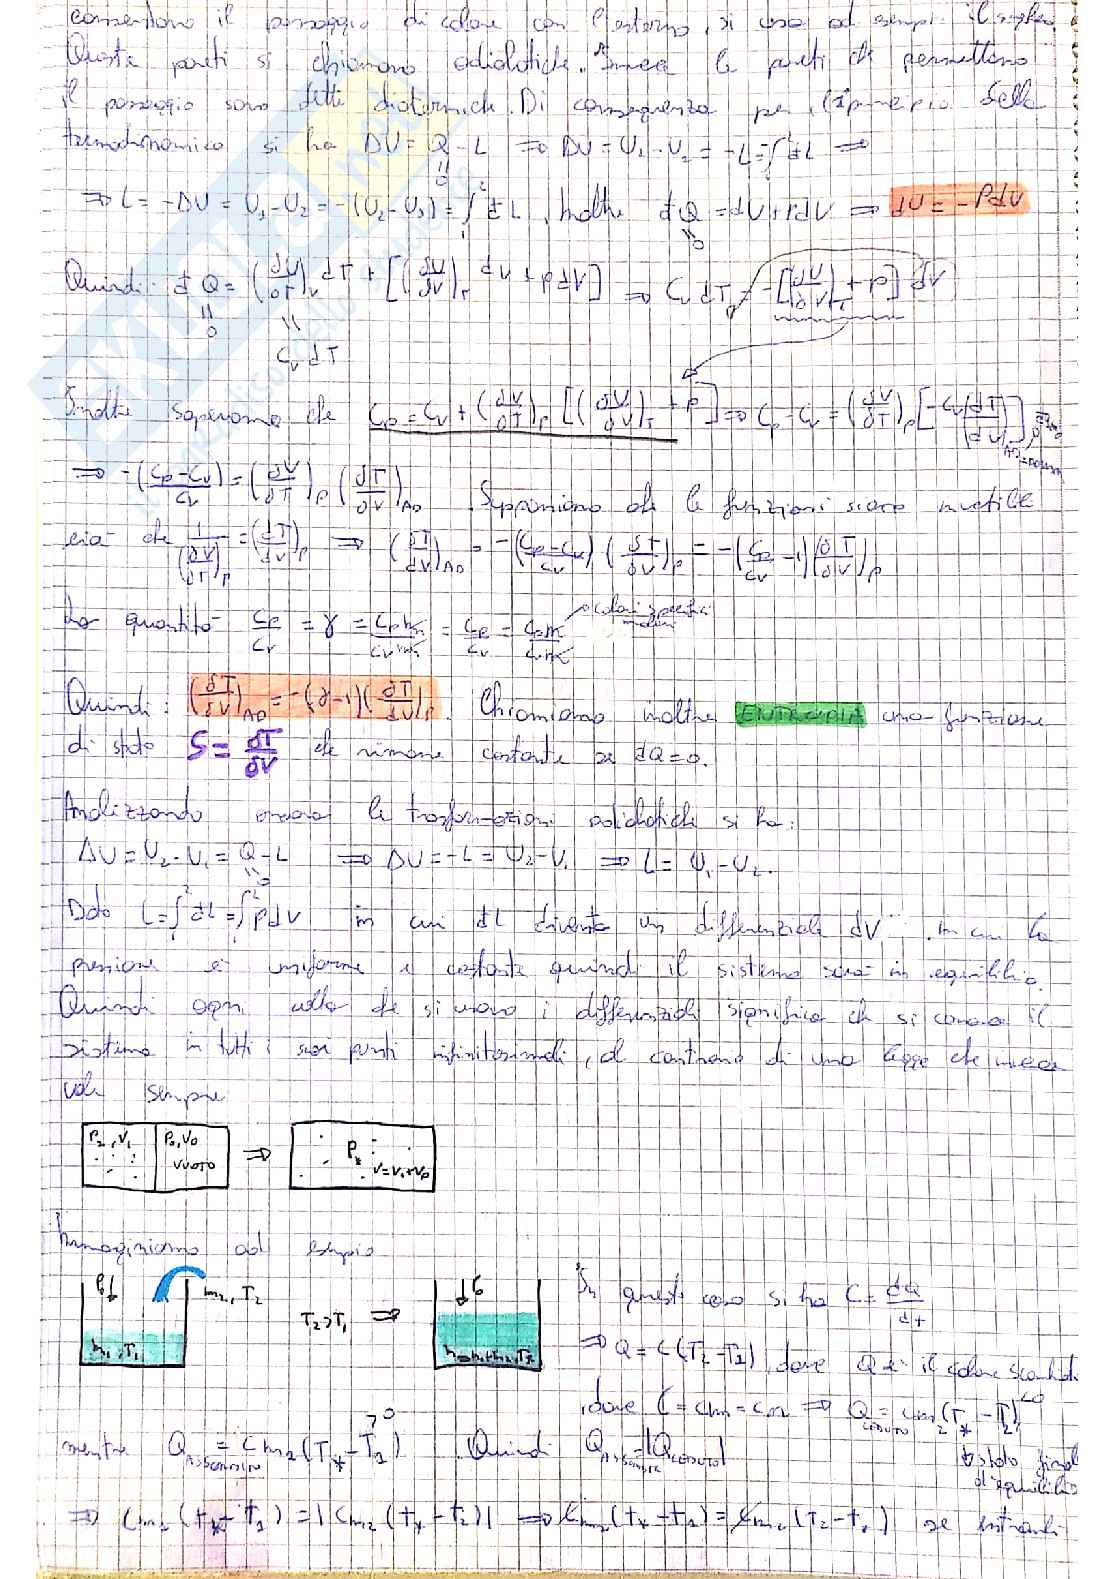 consentono il passaggio di calore con l'esterno, si usa ad esempio il
Queste pareti si chiamano adiabatiche. Invece le pareti che permettono
il passaggio sono dette diatermiche. Di conseguenza per il 1° principio della
termodinamica si ha ΔU = Q - L ⇒ ΔU = U₁ - U₂ = -L = ∫đL ⇒
⇒ L = -ΔU = U₁ - U₂ = -(U₂ - U₁) = ∫₁² đL, inoltre đQ = dU + pdV ⇒ dU = -PdV
Quindi: đQ = (∂U/∂T)_V dT + [(∂U/∂V)_T dV + pdV] ⇒ C_V dT = -[(∂U/∂V)_T + p] dV
0 C_V dT
Inoltre sapevamo che C_p = C_V + (∂V/∂T)_p [(∂U/∂V)_T + p] ⇒ C_p - C_V = (∂V/∂T)_p [-C_V (dT/dV)]
⇒ -(C_p - C_V)/C_V = (∂V/∂T)_p (∂T/∂V)_AD Supponiamo che le funzioni siano invertibili
cioè che 1/(∂V/∂T)_p = (∂T/∂V)_p ⇒ (∂T/∂V)_AD = -(C_p - C_V)/C_V (∂T/∂V)_p = -(C_p/C_V - 1)(∂T/∂V)_p
La quantità C_p/C_V = γ = = C_p/C_V = calori specifici molari
Quindi: (∂T/∂V)_AD = -(γ-1)(∂T/∂V)_p. Chiamiamo inoltre ENTROPIA una funzione
di stato S = ∂T/∂V che rimane costante se dQ = 0.
Analizzando ancora le trasformazioni adiabatiche si ha:
ΔU = U₂ - U₁ = Q - L ⇒ ΔU = -L = U₂ - U₁ ⇒ L = U₁ - U₂.
0
Dato L = ∫₁² đL = ∫₁² pdV in cui đL diventa un differenziale dV, in cui la
pressione è uniforme e costante quindi il sistema sarà in equilibrio.
Quindi ogni volta che si usano i differenziali significa che si conosce il
sistema in tutti i suoi punti infinitesimali, al contrario di una legge che invece
vale sempre
P₂, V₁ P₀, V₀ VUOTO ⇒ P* V = V₁ + V₀
Immaginiamo ad esempio
m₂, T₂ T₂ > T₁ ⇒ In questo caso si ha C = dQ/dT
m₁, T₁ ⇒ Q = C(T₂ - T₁), dove Q è il calore scambiato
, dove C = cm = cm ⇒ Q_CEDUTO = cm₂(T* - T₂) <0
mentre Q_ASSORBITO = cm₂(T* - T₁) >0. Quindi Q_ASSORBITO = |Q_CEDUTO| stato finale d'equilibrio
⇒ cm₂(t* - t₁) = |cm₂(t* - t₂)| ⇒ cm₂(t* - t₁) = cm₂(T₂ - t*) se entrambi